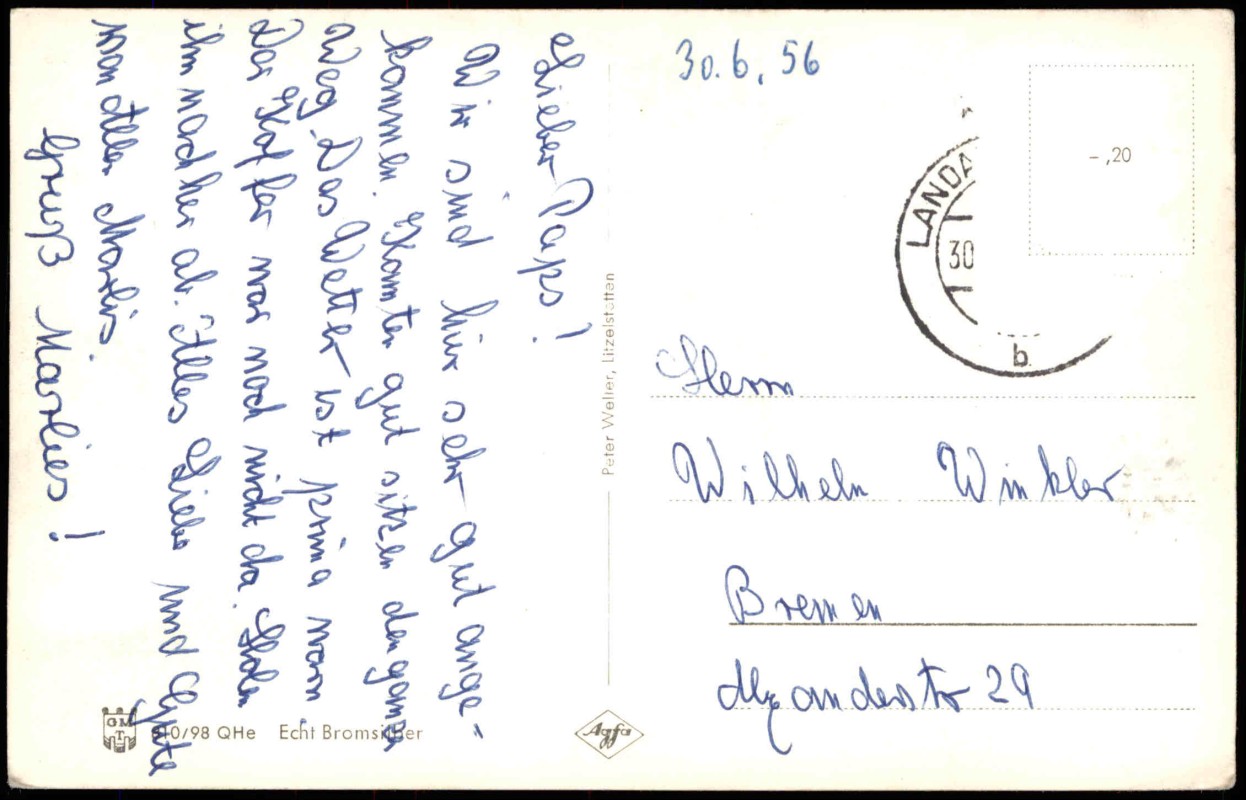 Lieber Paps!
Wir sind hier sehr gut ange-
kommen. Konnten gut sitzen den ganzen
Weg. Das Wetter ist prima warm
Der Koffer war noch nicht da. Holen
ihn nachher ab. Alles Liebe und Gute
von Allen Marlis.
Gruß Marlies!
Peter Welier, Litzelstetten
30.6.56
-,20
LANDA
30
b
Herrn
Wilhelm Winkler
Bremen
Alexanderstr 29
GM
T
510/98 QHe Echt Bromsilber
Agfa